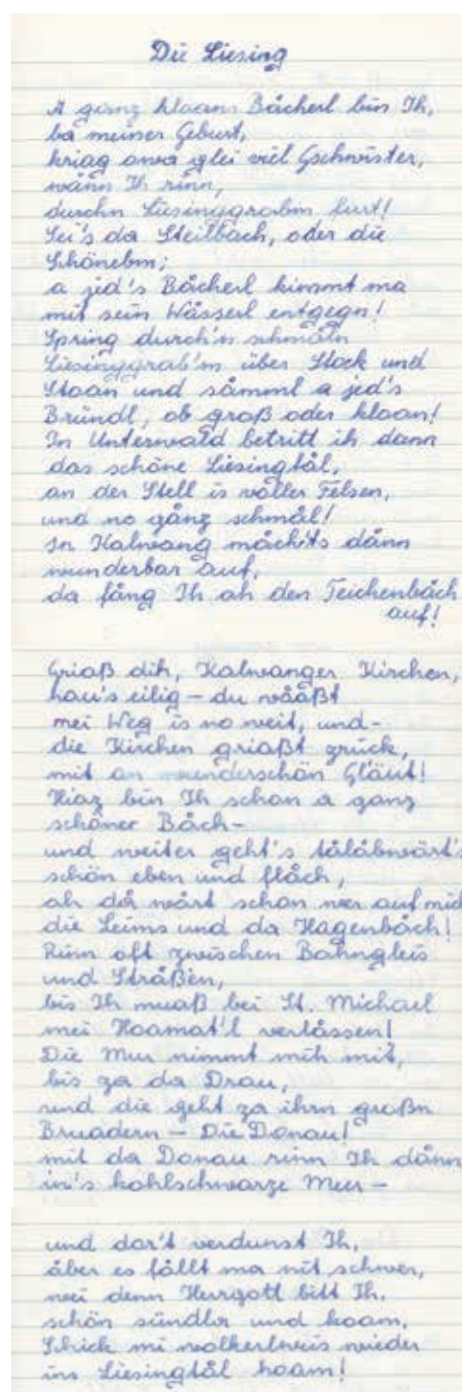 Die Liesing
A ganz klaans Bacherl bin Ih,
ba meiner Geburt,
kriag owa glei viel Gschwister,
wånn Ih rinn,
durchn Liesinggrabm furt!
Sei's da Steilbach, oder die
Schönebm;
a jed's Bacherl kimmt ma
mit sein Wåsserl entgegn!
Spring durch'n schmåln
Liesinggrab'm über Stock und
Stoan und såmml a jed's
Bründl, ob groß oder klaan!
In Unterwald betritt ih dann
das schöne Liesingtål,
an der Stell is våller Felsen,
und no gånz schmål!
In Kalwang måchts dånn
wunderbar auf,
da fång Ih ah den Teichenbåch
auf!
Griaß dih, Kalwanger Kirchen,
hau's eilig – du wååßt
mei Weg is no weit, und –
die Kirchen griaßt zrück,
mit an wunderschön Gläut!
Hiaz bin Ih schon a ganz
schöner Båch –
und weiter geht's tålåbwärt's
schön eben und flåch,
ah då wårt schon wer auf mid
die Leims und da Hagenbåch!
Rinn oft zwischen Bahngleis
und Stråßen,
bis Ih muaß bei St. Michael
mei Hoamat'l verlåssen!
Die Mur nimmt mih mit,
bis za da Drau,
und die geht za ihrn großn
Bruadern – Die Donau!
mit da Donau rinn Ih dånn
in's kohlschwarze Meer –
und dor't verdunst Ih,
åber es fållt ma nit schwer,
wei denn Herrgott bitt Ih,
schön und
Schick mi wolkerlweis wieder
ins Liesingtål hoam!